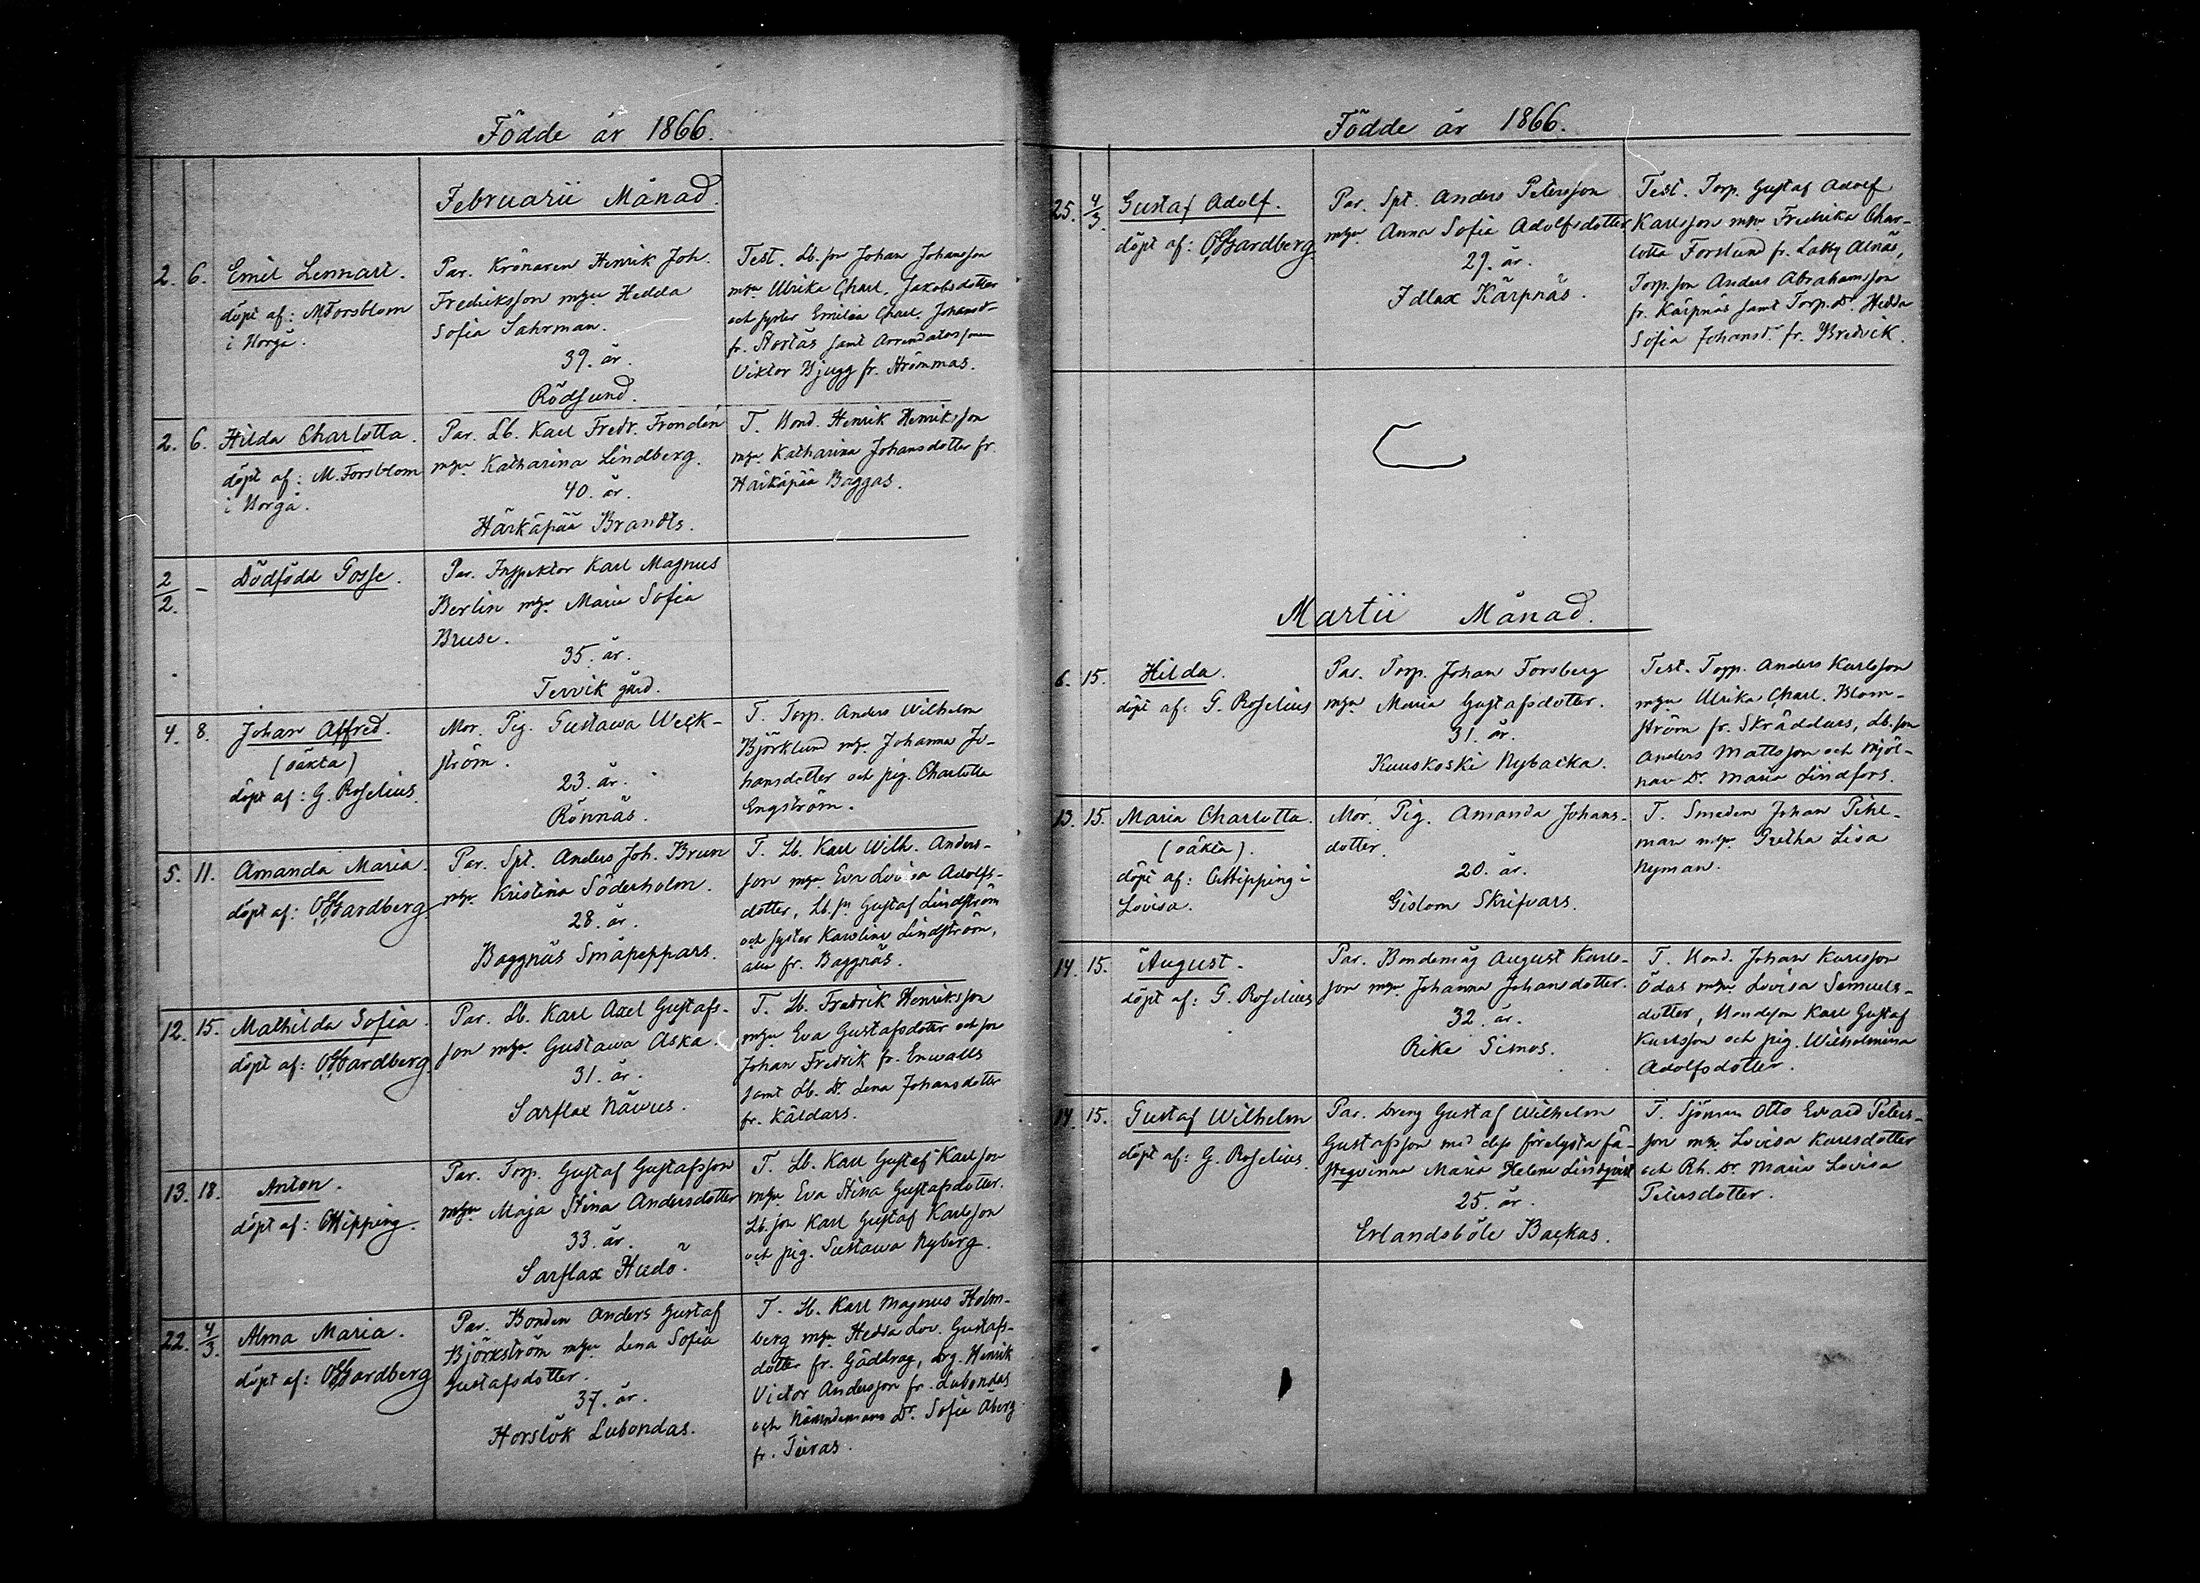 Födde år 1866.
Februarii Månad.
2. 6. Emil Lennart.
döpt af: M. Forsblom
i Borgå.
Par. Krönaren Henrik Joh.
Fredriksson mhu Hedda
Sofia Sahrman.
39. år.
Rödsund.
Test. Lb. son Johan Johansson
mhu Ulrika Charl. Jakobsdotter
och syster Emilia Charl. Johansd:
fr. Stortäs samt Arrendatorssonen
Viktor Bjugg fr. Strömmas.
2. 6. Hilda Charlotta.
döpt af: M. Forsblom
i Borgå.
Par. Lb. Karl Fredr. Frondén
mhu Katharina Lindberg.
40. år.
Härkäpää Brandts.
T. Bond. Henrik Henriksson
mhu Katharina Johansdotter fr.
Härkäpää Baggas.
2/2. – Dödfödd Gosse.
Par. Inspektor Karl Magnus
Berlin mhu Maria Sofia
Bruse.
35. år.
Tervik gård.
4. 8. Johan Alfred.
(oäkta)
döpt af: G. Roselius.
Mor. Pig. Gustawa Weck-
ström.
23. år.
Rönnäs.
T. Torp. Anders Wilhelm
Björklund mhu Johanna Jo-
hansdotter och pig. Charlotta
Engström.
5. 11. Amanda Maria.
döpt af: Hardberg
Par. Spt. Anders Joh. Brun
mhu Kristina Söderholm.
28. år.
Baggnäs Småpeppars.
T. Lb. Karl Wilh. Anders-
son mhu Eva Lovisa Adolfs-
dotter, Lb. sn Gustaf Lindström
och syster Karolina Lindström,
alla fr. Baggnäs.
12. 15. Mathilda Sofia.
döpt af: Hardberg.
Par. Lb. Karl Axel Gustafs-
son mhu Gustawa Aska.
31. år.
Sarflax Näwus.
T. Lb. Fredrik Henriksson
mhu Eva Gustafsdotter och son
Johan Fredrik fr. Enwalls
samt Lb. Dr Lena Johansdotter
fr. Käldars.
13. 18. Anton.
döpt af: Hipping.
Par. Torp. Gustaf Gustafsson
mhu Maja Stina Andersdotter
33. år.
Sarflax Hudö.
T. Lb. Karl Gustaf Karlsson
mhu Eva Stina Gustafsdotter.
Lb. son Karl Gustaf Karlsson
och pig. Gustawa Nyberg.
22. 4/3. Alma Maria.
döpt af: Hardberg
Par. Bonden Anders Gustaf
Björkström mhu Lena Sofia
Gustafsdotter.
37. år.
Horslök Lubondas.
T. Lb. Karl Magnus Holm-
berg mhu Hedda Lov. Gustafs-
dotter fr. Gäddrag, drg. Henrik
Victor Andersson fr. Lubondas
och Nämndemans Dr. Sofia Åberg
fr. Teiras.
Födde år 1866.
25. 4/3. Gustaf Adolf.
döpt af: Hardberg
Par. Spt. Anders Petersson
mhu Anna Sofia Adolfsdotter
29. år.
Idlax Kärpnäs.
Test. Torp. Gustaf Adolf
Karlsson mhu Fredrika Char-
lotta Forslund fr. Labby Alnäs,
Torp. son Anders Abrahamsson
fr. Kärpnäs samt Torp. Dr. Hedda
Sofia Johansd. fr. Bredvik.
Martii Månad.
6. 15. Hilda.
döpt af: G. Roselius
Par. Torp. Johan Forsberg
mhu Maria Gustafsdotter.
31. år.
Kuuskoski Nybacka.
Test. Torp. Anders Karlsson
mhu Ulrika Charl. Blom-
ström fr. Skräddars, Lb. son
Anders Mattsson och Mjöl-
nar Dr. Maria Lindfors.
13. 15. Maria Charlotta.
(oäkta).
döpt af: Hipping i
Lovisa.
Mor. Pig. Amanda Johans-
dotter.
20. år.
Gislom Skrifvars.
T. Smeden Johan Pihl-
man mhu Gretha Lisa
Nyman.
14. 15. August.
döpt af: G. Roselius
Par. Bondemåg August Karls-
son mhu Johanna Johansdotter.
32. år.
Rike Simos.
T. Bond. Johan Karlsson
Ödas mhu Lovisa Samuels-
dotter, Bondeson Karl Gustaf
Karlsson och pig. Wilhelmina
Adolfsdotter.
14. 15. Gustaf Wilhelm
döpt af: G. Roselius.
Par. Dreng Gustaf Wilhelm
Gustafsson med dess förelysta fä-
steqvinna Maria Helena Lindqvist
25. år.
Erlandsböle Backas.
T. Sjöman Otto Evard Peters-
son mhu Lovisa Karlsdotter
och Rh. Dr. Maria Lovisa
Petersdotter.